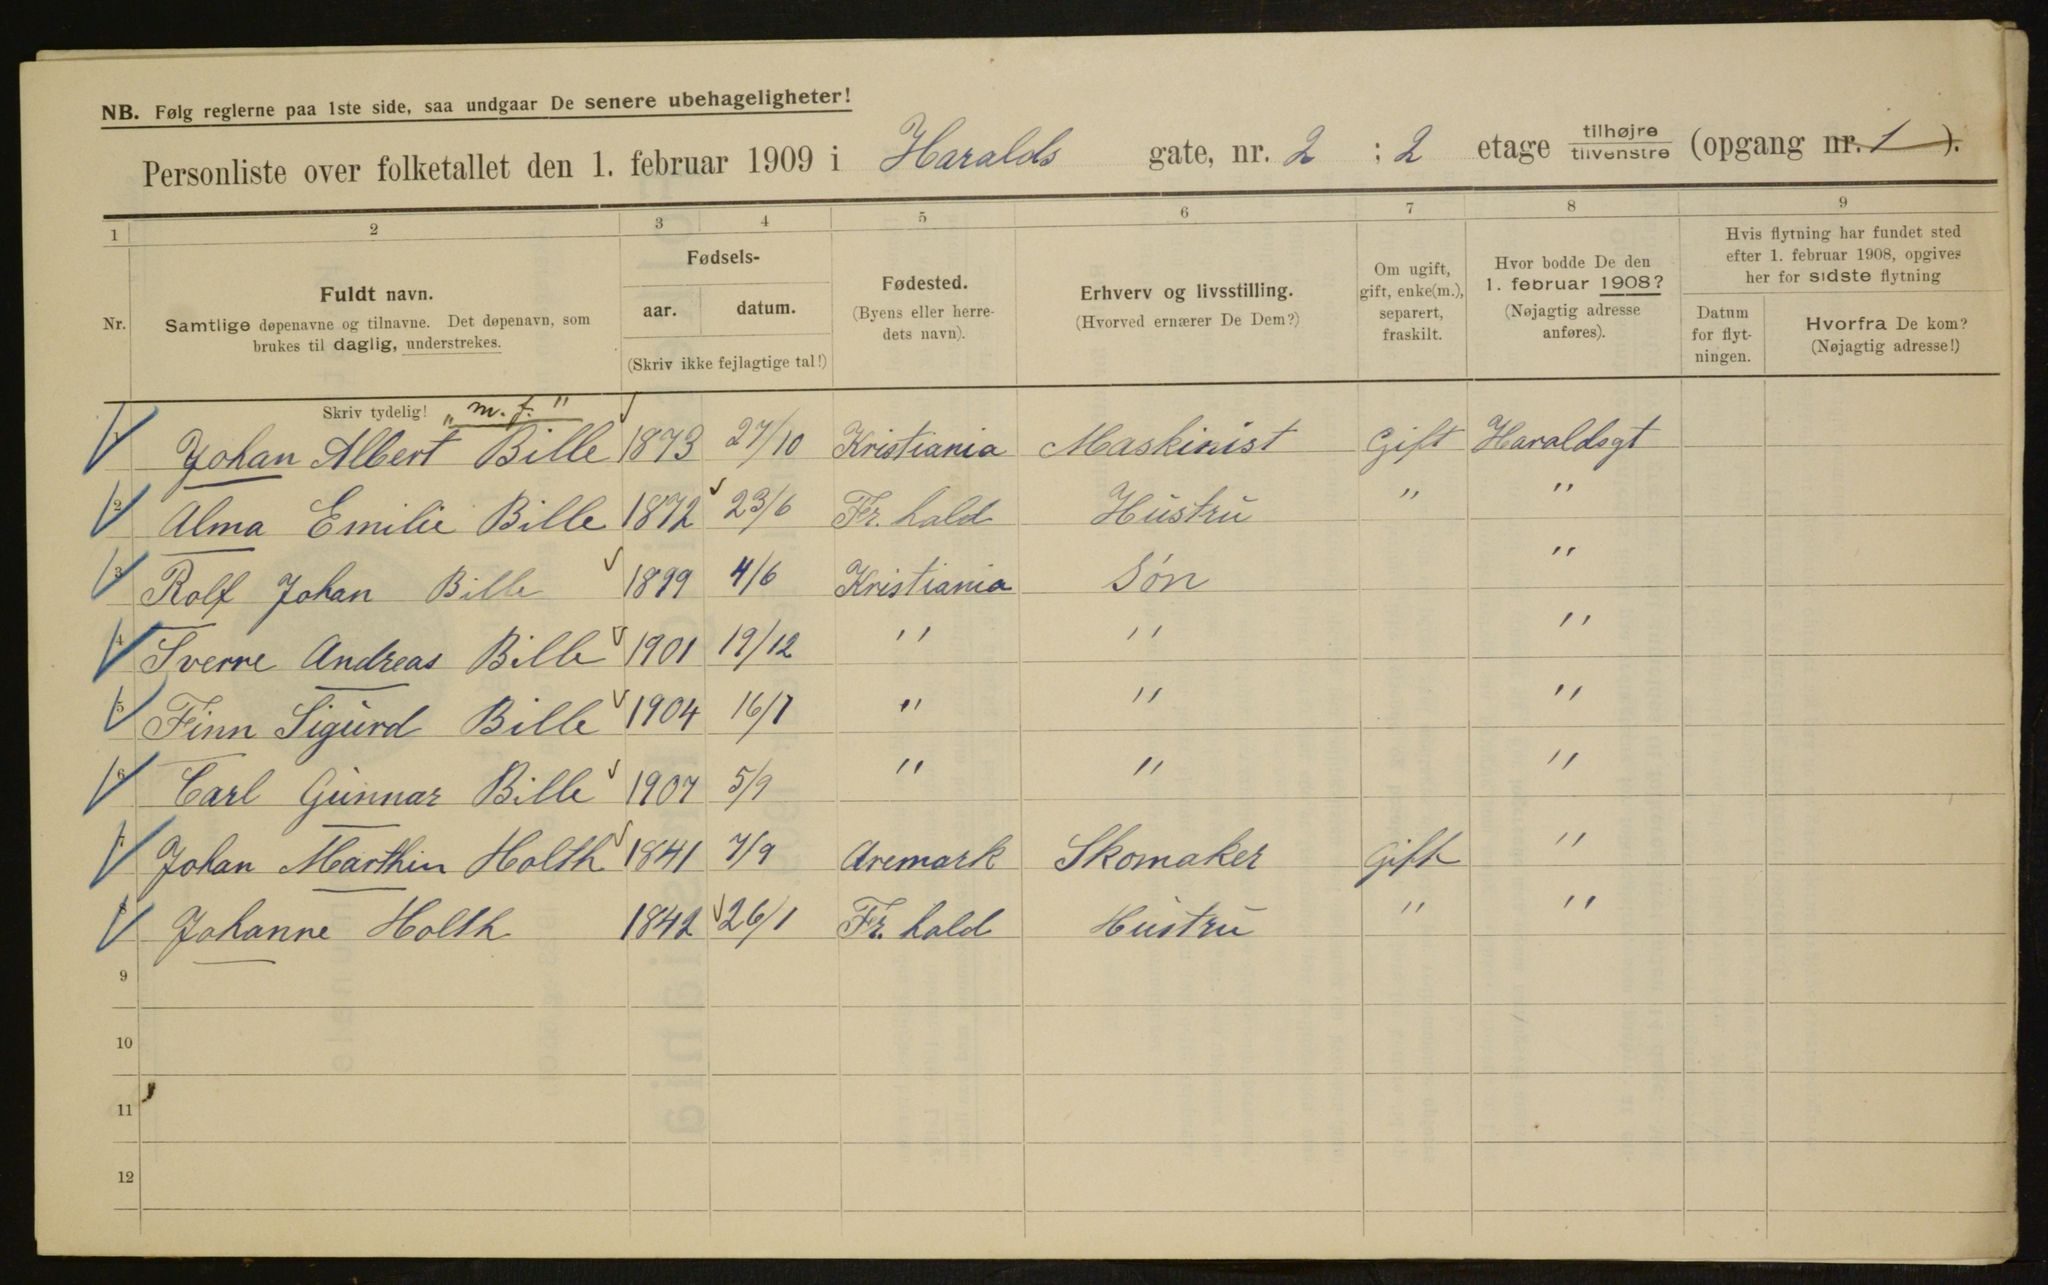 NB. Følg reglerne paa 1ste side, saa undgaar De senere ubehageligheter!
Personliste over folketallet den 1. februar 1909 i Haralds gate, nr. 2 : 2 etage tilhøjre tilvenstre (opgang nr. 1 ).
1 2 3 4 5 6 7 8 9
Nr.
Fuldt navn.
Samtlige døpenavne og tilnavne. Det døpenavn, som
brukes til daglig, understrekes.
Skriv tydelig!
Fødsels-
aar. datum.
(Skriv ikke fejlagtige tal!)
Fødested.
(Byens eller herre-
dets navn).
Erhverv og livsstilling.
(Hvorved ernærer De Dem?)
Om ugift,
gift, enke(m.),
separert,
fraskilt.
Hvor bodde De den
1. februar 1908?
(Nøjagtig adresse
anføres).
Hvis flytning har fundet sted
efter 1. februar 1908, opgives
her for sidste flytning
Datum
for flyt-
ningen.
Hvorfra De kom?
(Nøjagtig adresse!)
"m. f."
1 Johan Albert Bille 1873 27/10 Kristiania Maskinist Gift Haraldsgt
2 Alma Emilie Bille 1872 23/6 Fr. hald Hustru " "
3 Rolf Johan Bille 1899 4/6 Kristiania Søn "
4 Sverre Andreas Bille 1901 19/12 " " "
5 Finn Sigurd Bille 1904 16/7 " " "
6 Carl Gunnar Bille 1907 5/9 " " "
7 Johan Marthin Holth 1841 7/9 Aremark Skomaker Gift "
8 Johanne Holth 1842 26/1 Fr. hald Hustru " "
9
10
11
12